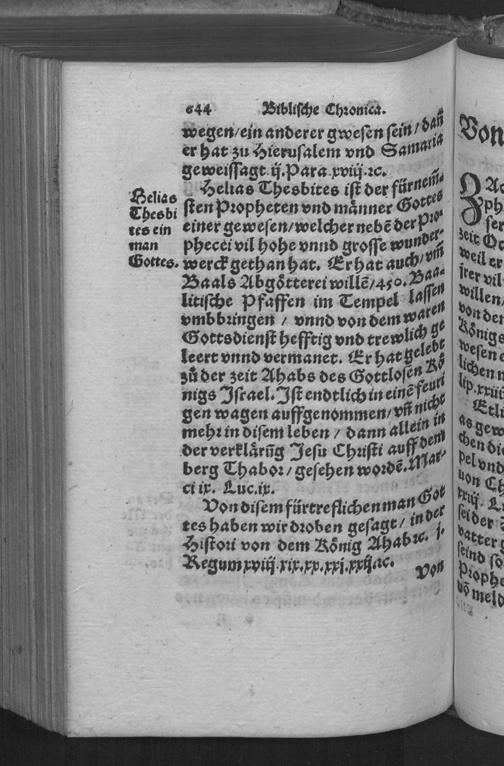 644 Biblische Chronica.
wegen/ein anderer gwesen sein/dañ
er hat zu Hierusalem vnd Samaria
geweissagt.ij.Para.xviij.ꝛc.
Helias Thesbites ist der fürnem̃-
sten Propheten vnd männer Gottes
einer gewesen/welcher nebẽ der Pro-
phecei vil hohe vnnd grosse wunder-
werck gethan hat. Er hat auch/vm̃
Baals Abgötterei willẽ/450.Baa-
litische Pfaffen im Tempel lassen
vmbbringen / vnnd von dem waren
Gottsdienst hefftig vnd trewlich ge
leert vnnd vermanet. Er hat gelebt
zů der zeit Ahabs des Gottlosen Kö
nigs Jsrael. Jst endtlich in einẽ feuri
gen wagen auffgenommen/vñ nicht
mehr in disem leben / dann allein in
der verklärũg Jesu Christi auff dem
berg Thabor/gesehen wordẽ. Mar-
ci ix. Luc.ix.
Von disem fürtreflichen man Got
tes haben wir droben gesagt / in der
Histori von dem König Ahab ꝛc. j.
Regum xviij.xix.xx.xxj.xxij.ꝛc.
Von
Helias
Thesbi
tes ein
man
Gottes.
Von
zeit
weil er
jrer vil
willen/
von der
Königs
wesen
lichen
Etli
pel vnd
von
vatter
seind so
Prophe
võ meld